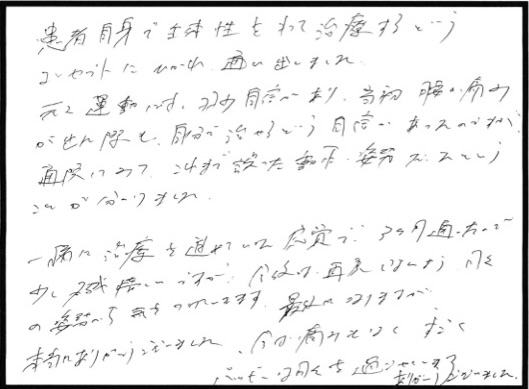 患者自身で主体性をもって治療するという
コンセプトにひかれ、通い出しました。
元々運動には、多少自信があり、当初腰の痛み
が出た際も、自分で治せるという自信があったのですが、
通院してみて、これまで誤った動作・姿勢だったという
ことが分かりました。
一緒に治療を進めていく感覚で、3ヶ月通ったので
少し残惜しいですが、今後は再発しないよう、日々
の姿勢から気をつけていきます。最後になりますが
本当にありがとうございました。今は痛みもなく すごく
ハッピーな日々を過ごせています
ありがとうございました。